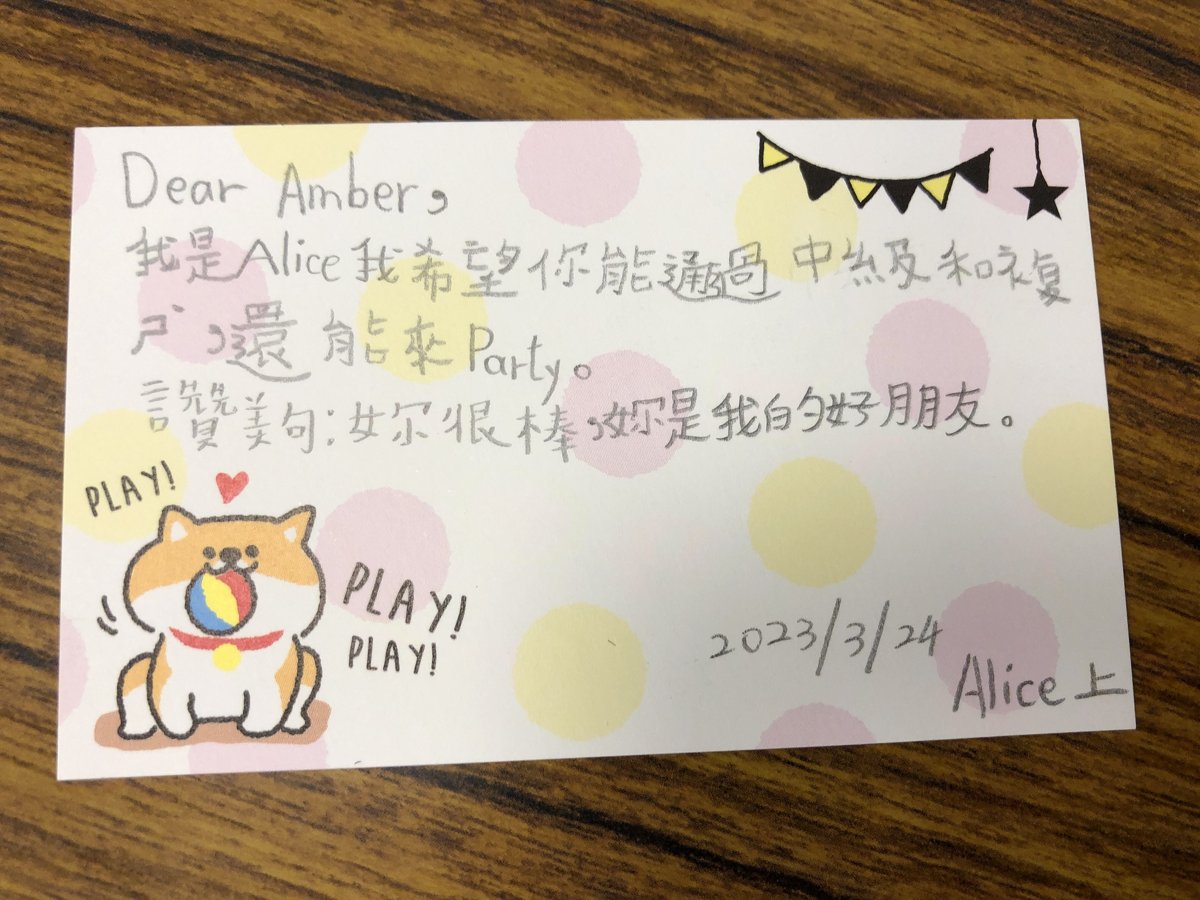 Dear Amber,
我是Alice我希望你能通過中級和複
ㄕˋ,還能來Party。
讚美句:妳很棒,妳是我的好朋友。
PLAY!
PLAY!
PLAY!
2023/3/24
Alice 上